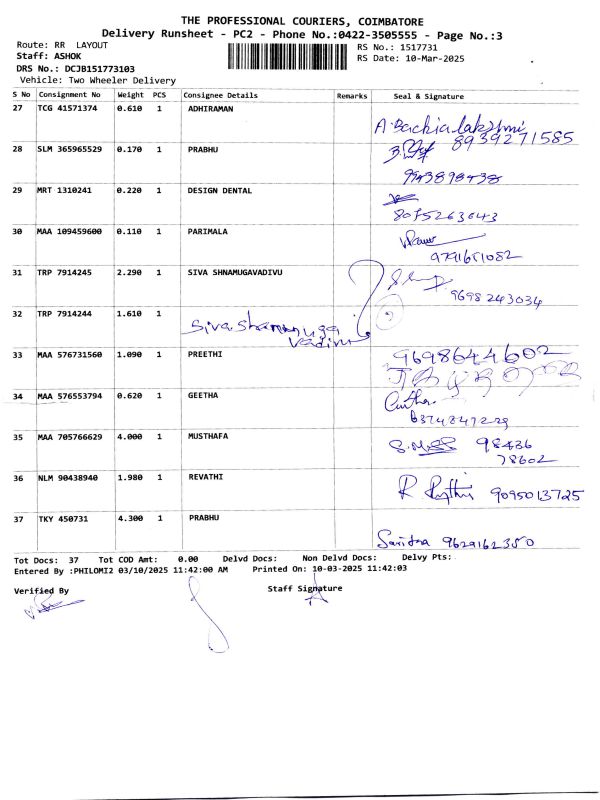 THE PROFESSIONAL COURIERS, COIMBATORE
Delivery Runsheet - PC2 - Phone No.:0422-3505555 - Page No.:3
Route: RR LAYOUT
RS No.: 1517731
Staff: ASHOK
RS Date: 10-Mar-2025
DRS No.: DCJB151773103
Vehicle: Two Wheeler Delivery
S No Consignment No Weight PCS Consignee Details Remarks Seal & Signature
27 TCG 41571374 0.610 1 ADHIRAMAN
A. Backialakshmi
8939271585
28 SLM 365965529 0.170 1 PRABHU
29 MRT 1310241 0.220 1 DESIGN DENTAL
8075263043
30 MAA 109459600 0.110 1 PARIMALA
9791651082
31 TRP 7914245 2.290 1 SIVA SHNAMUGAVADIVU
9698243034
32 TRP 7914244 1.610 1
Sivashanmuga
vadivu
33 MAA 576731560 1.090 1 PREETHI
9698644602
34 MAA 576553794 0.620 1 GEETHA
6374847229
35 MAA 705766629 4.000 1 MUSTHAFA
98436
78602
36 NLM 90438940 1.980 1 REVATHI
9095013725
37 TKY 450731 4.300 1 PRABHU
Saritha 9629162350
Tot Docs: 37 Tot COD Amt: 0.00 Delvd Docs: Non Delvd Docs: Delvy Pts:
Entered By :PHILOMI2 03/10/2025 11:42:00 AM Printed On: 10-03-2025 11:42:03
Verified By Staff Signature